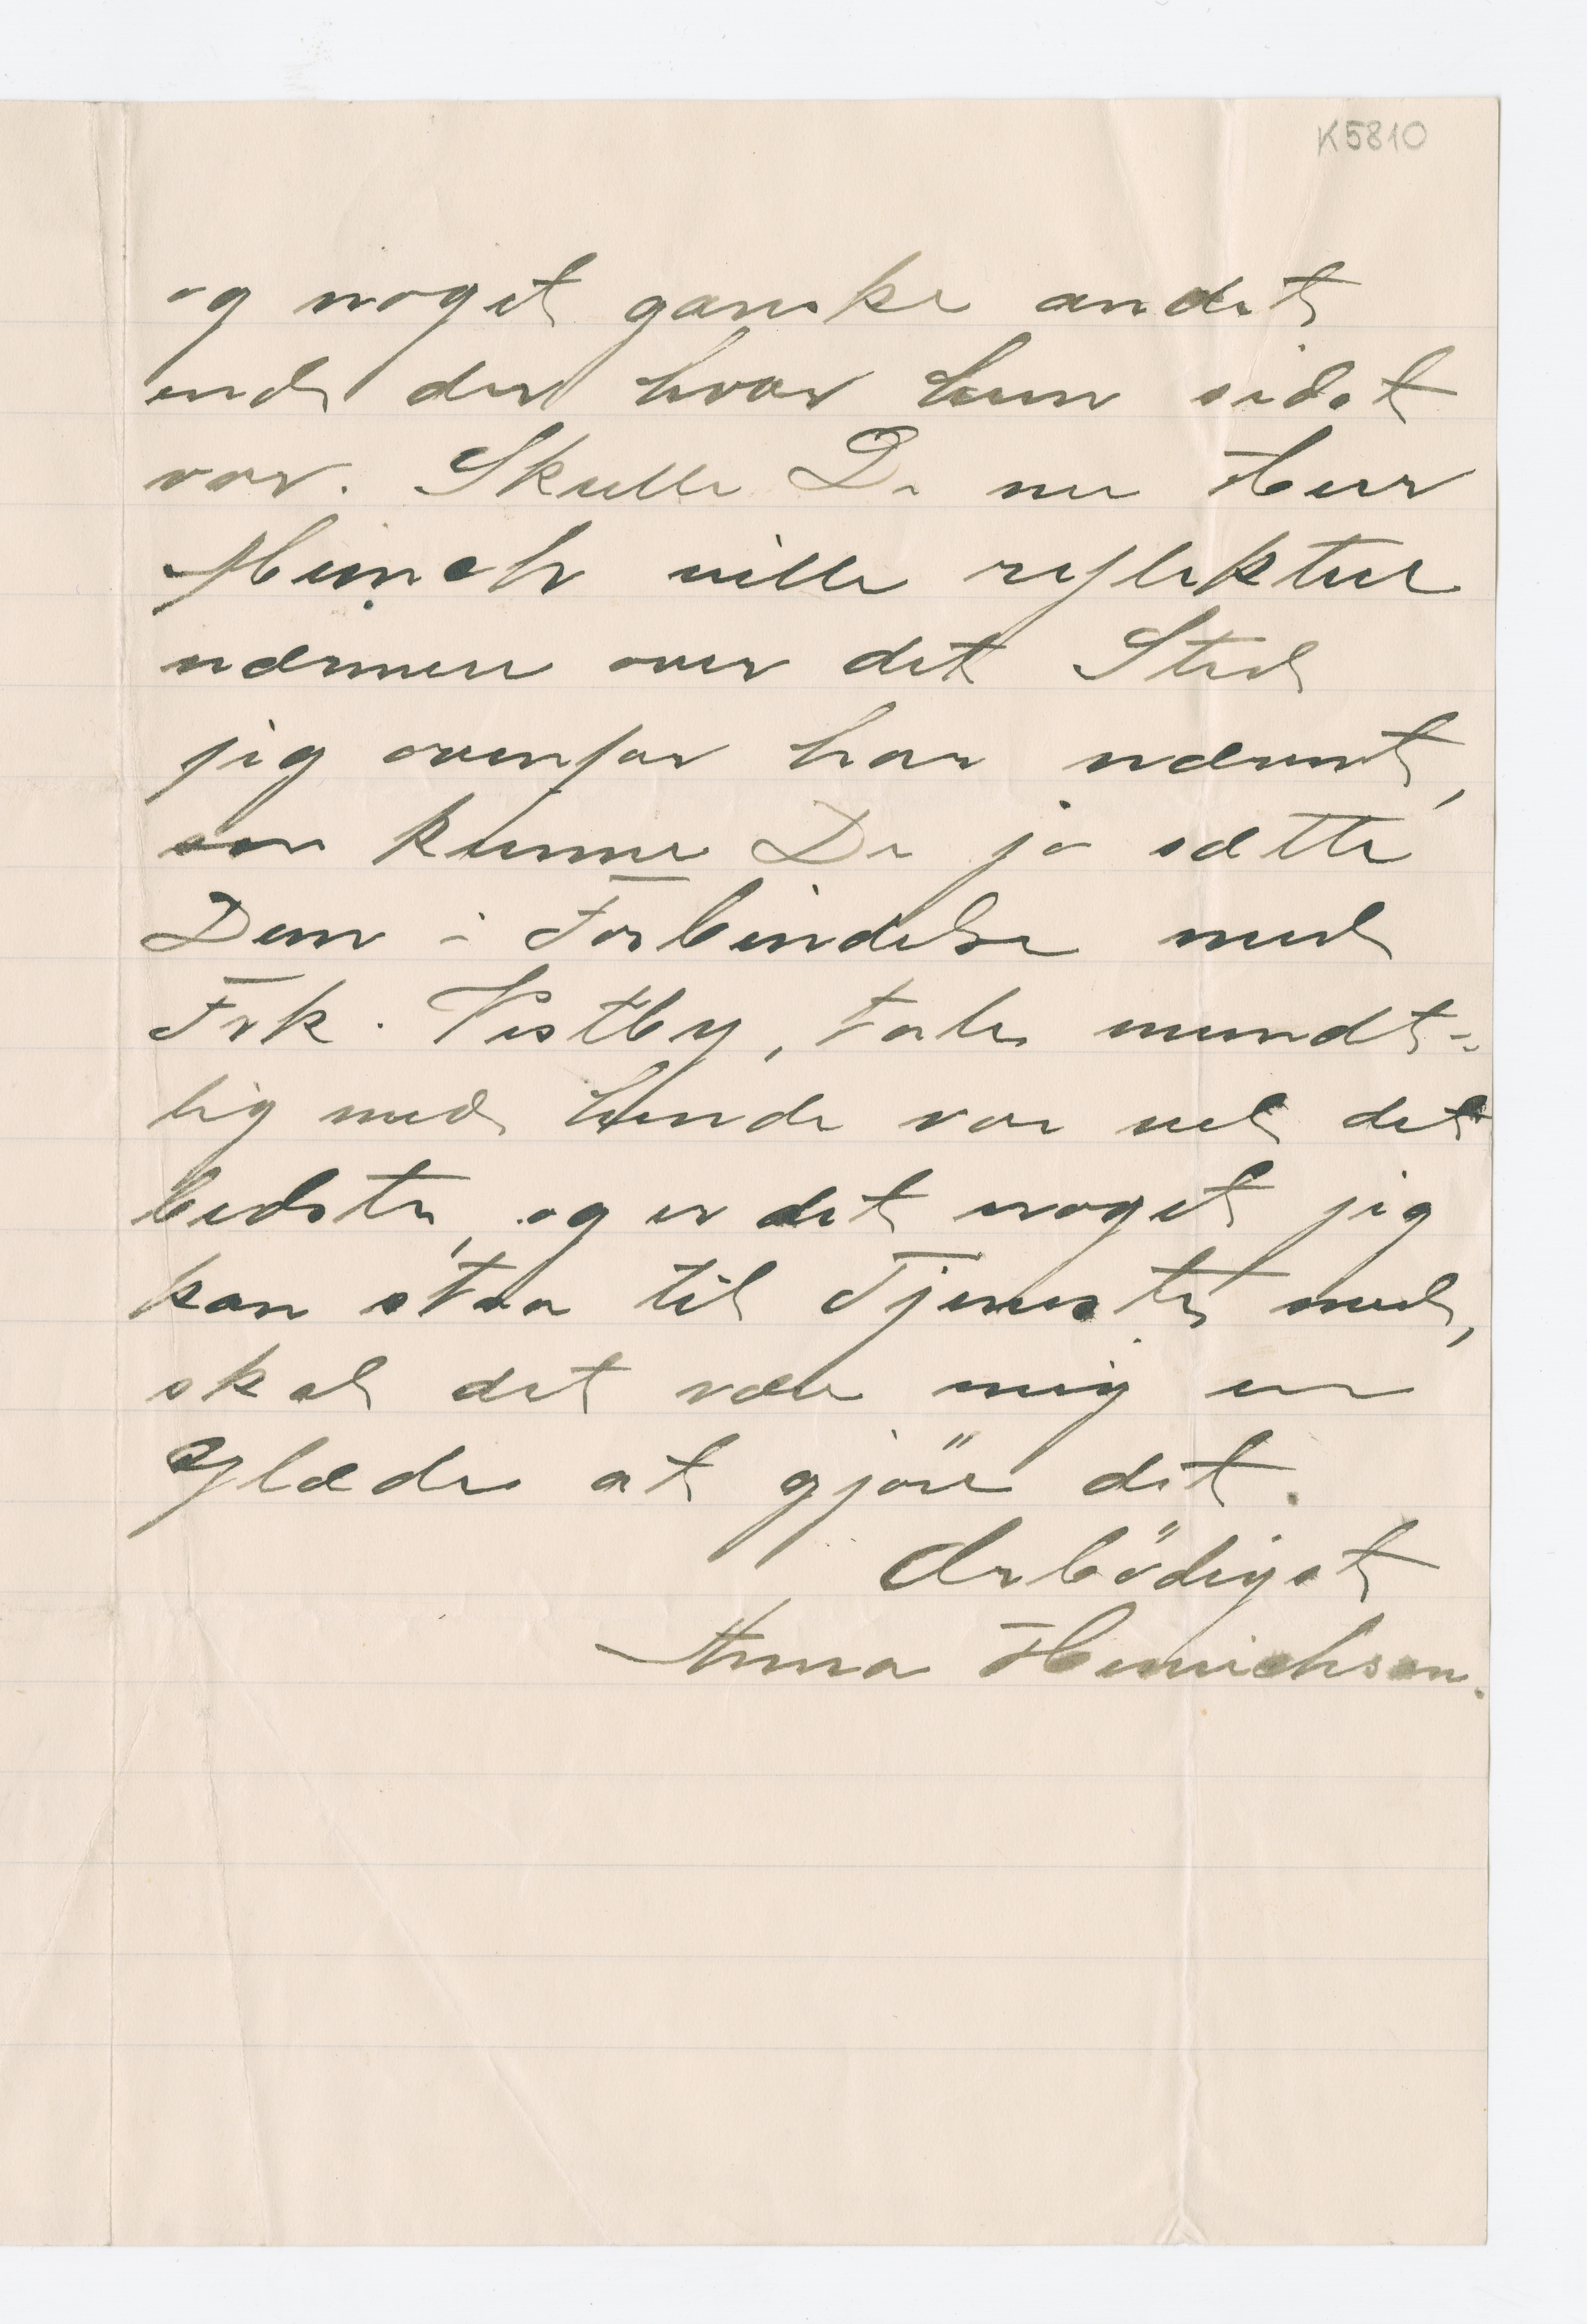 K5810
og noget ganske andet
end der hvor hun sidst
var. Skulle De nu Herr
Munch ville reflektere
nærmere over det Sted
jeg ovenfor har nævnt,
saa kunne De jo sætte
Dem i Forbindelse med
Frk. Vestby, tale mundt=
lig med hende var vel det
bedste, og er det noget jeg
kan staa til Tjeneste med,
skal det være mig en
Glæde at gjöre det.
Ærbödigst
Anna Henrichsen.